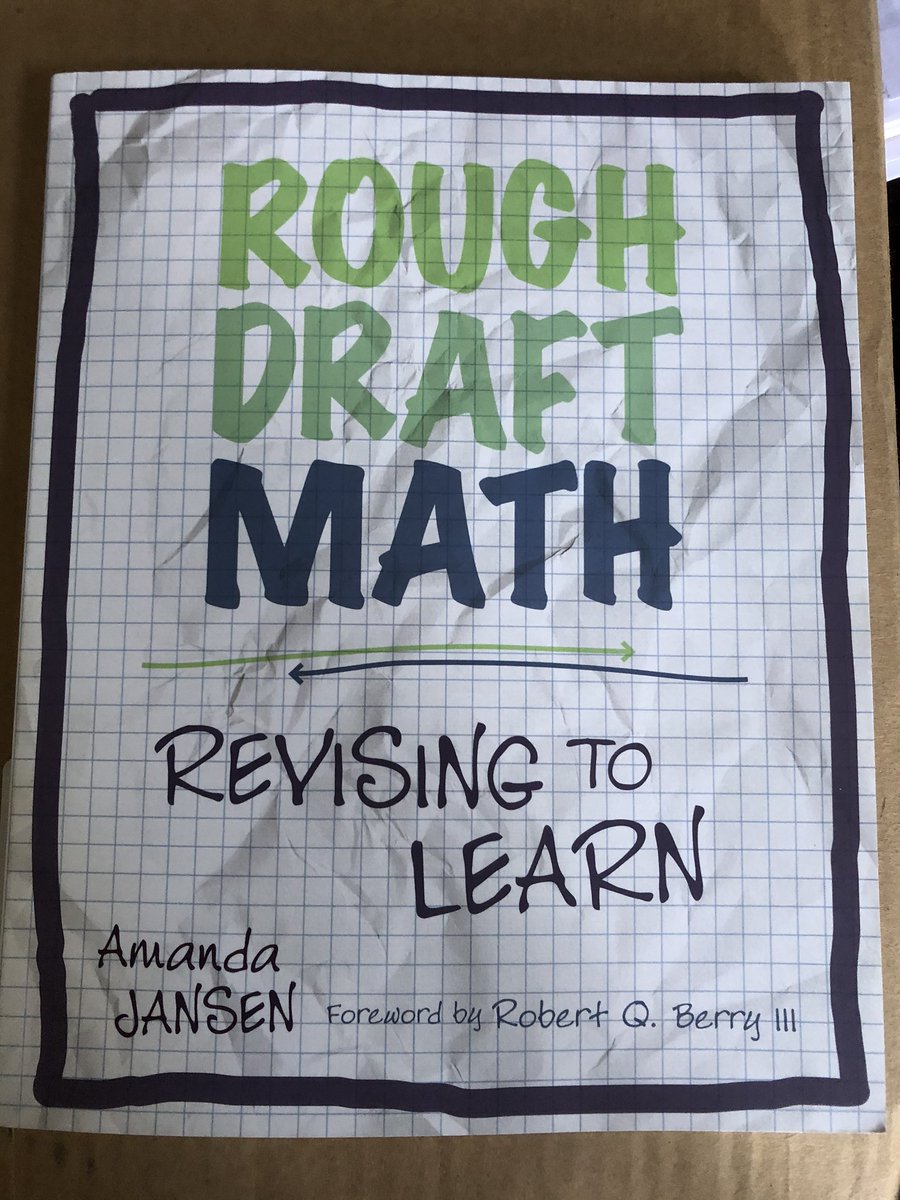 ROUGH
DRAFT
MATH
REVISING TO
LEARN
Amanda
JANSEN
Foreword by Robert Q. Berry III